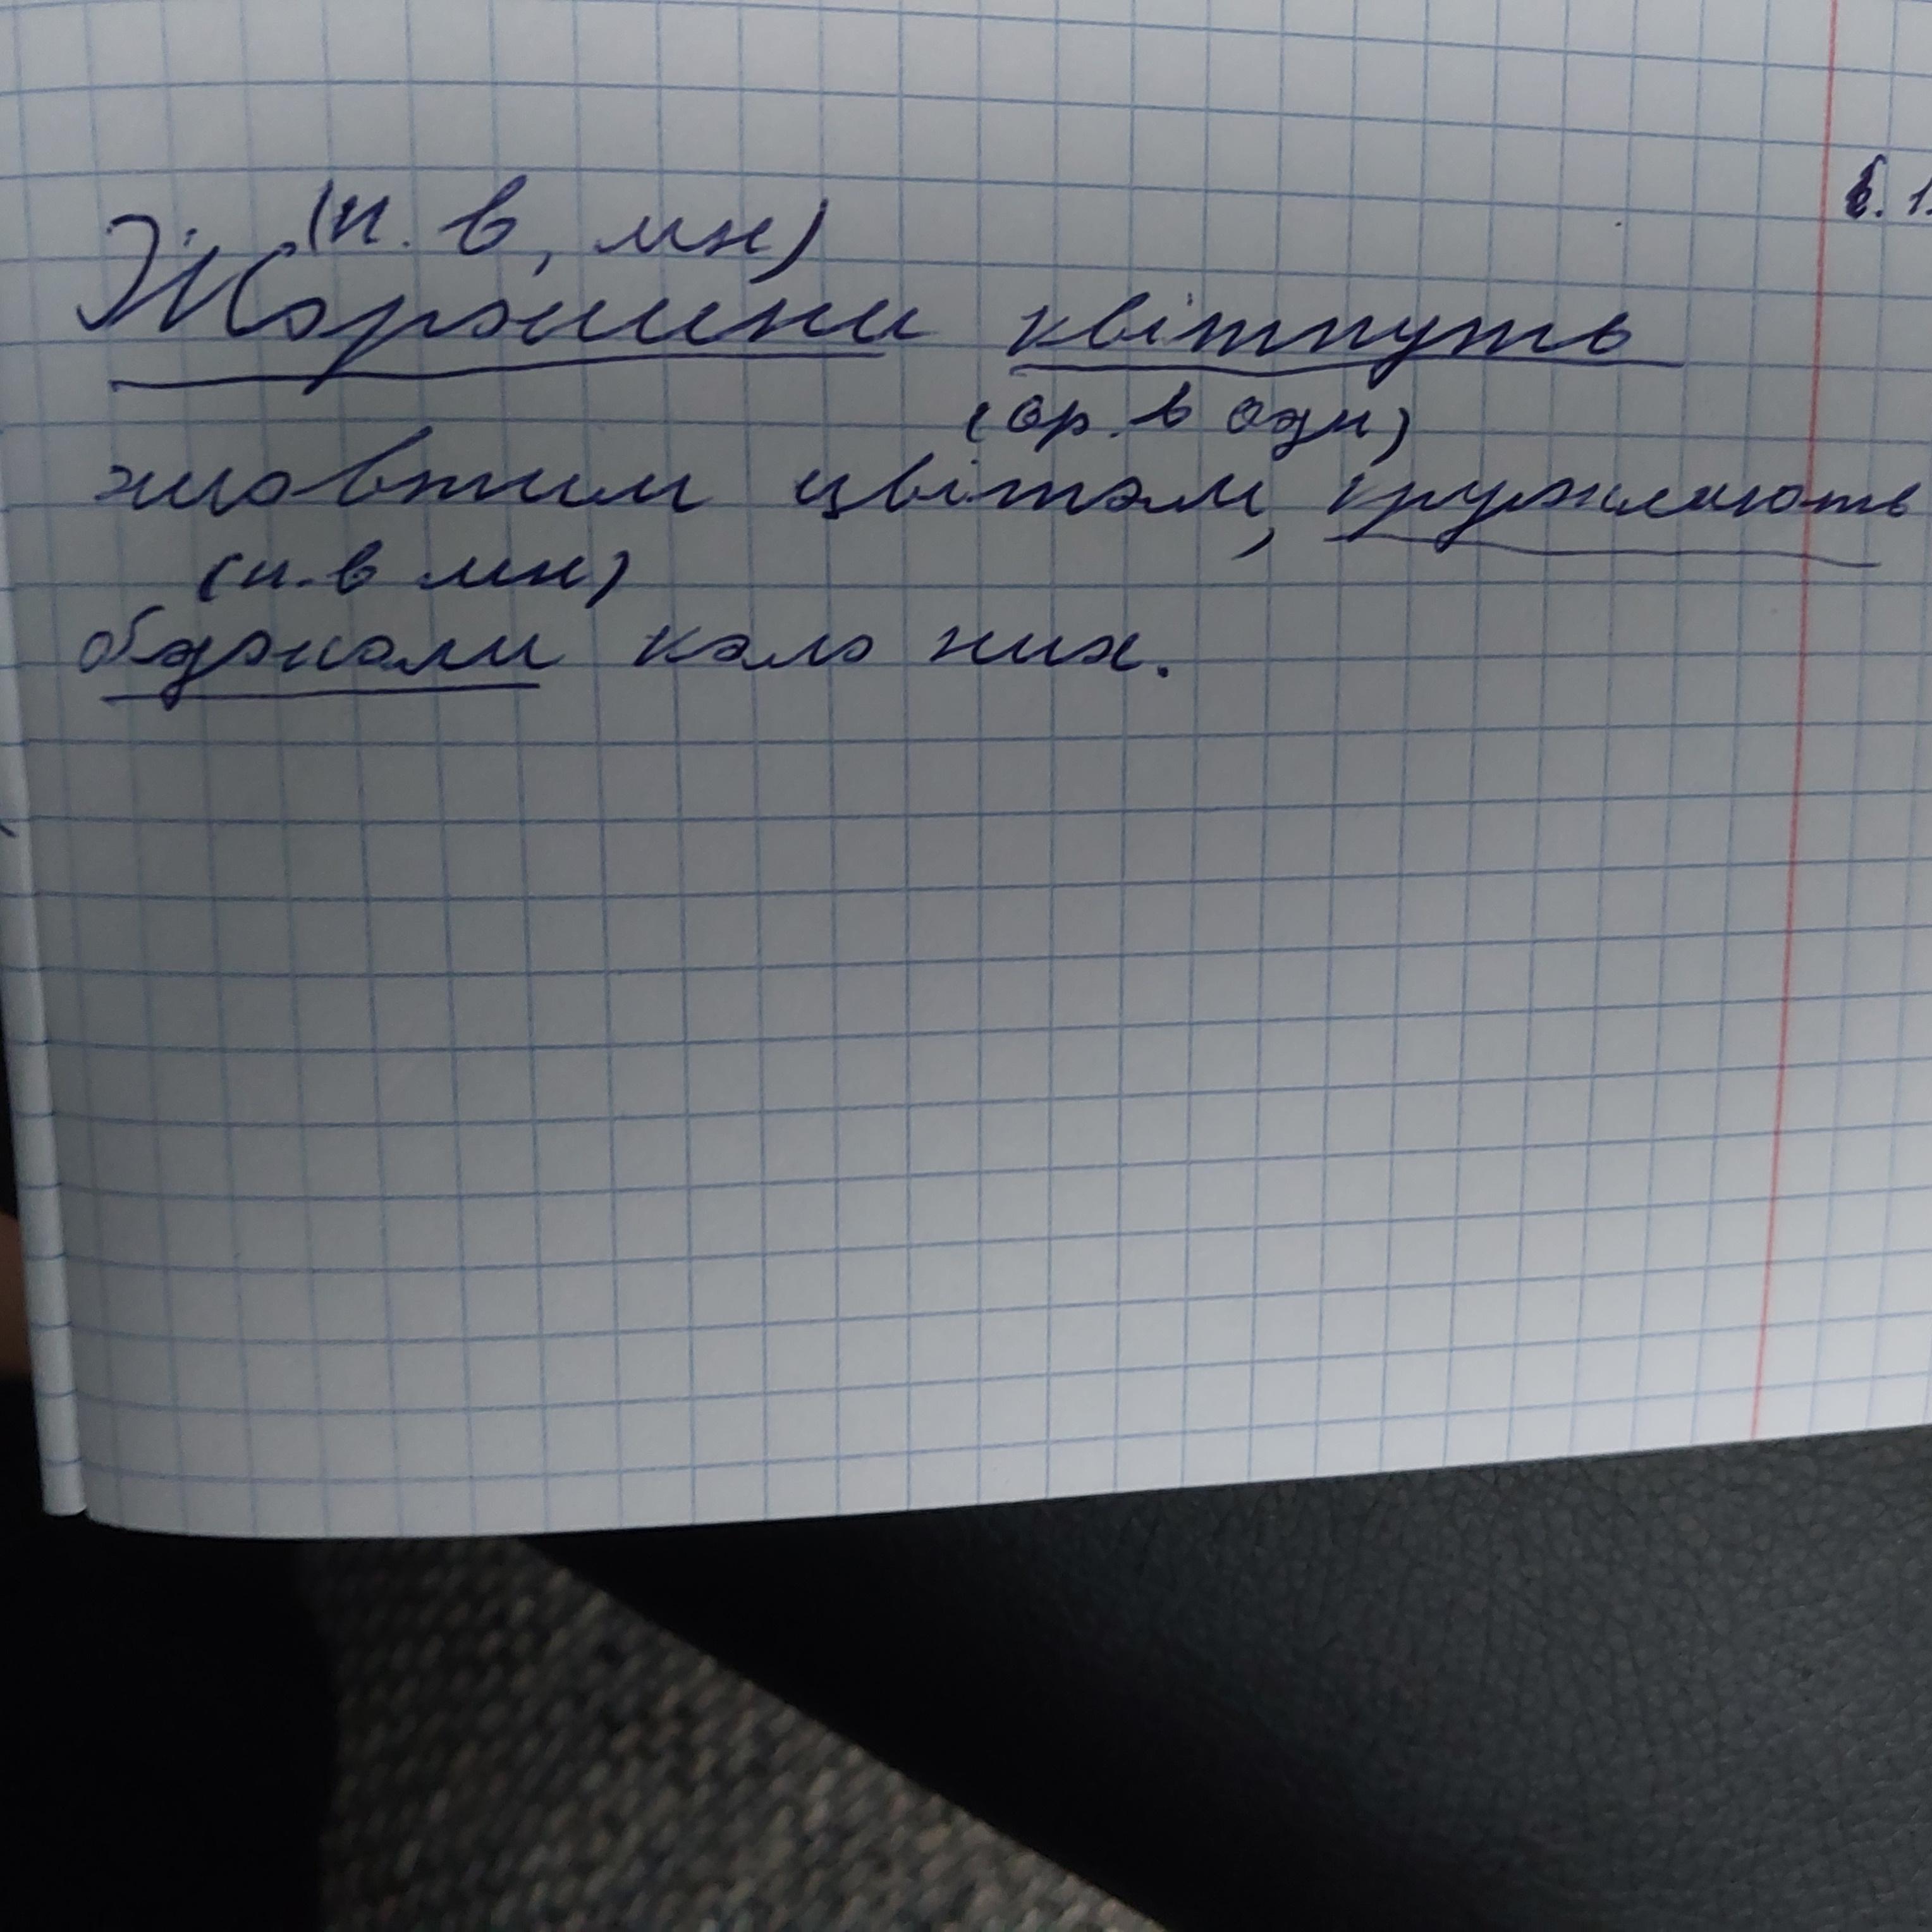 (н. в, мн)
Жоржини квітнуть
(ор. в одн)
жовтим цвітом, кружляють
(н. в мн)
бджоли коло них.